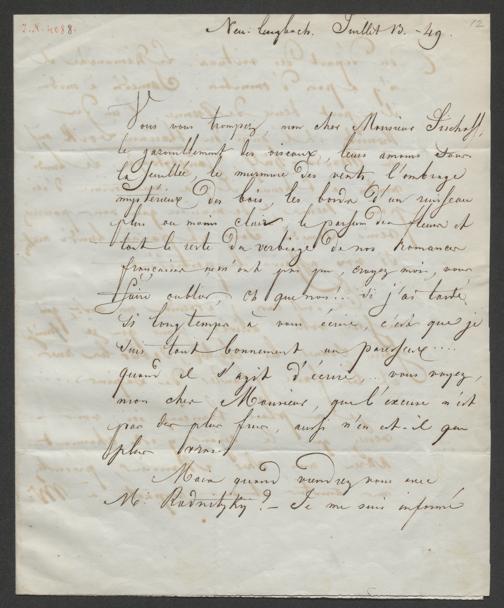 I.N. 4088.
12
Neu-Lengbach. Juillet 13. - 49.
Vous vous trompez, mon cher Monsieur Fischhoff,
le gazouillement des oiseaux, leurs amours sous
la feuillée le murmure des vents l'ombrage
mystérieux des bois, les bords d'un ruisseau
plus ou moins clair le parfum des fleurs et
tout le reste du verbiage de nos romances
françaises n'ont pas pu, croyez moi, vous
faire oublier, oh que non!.. Si j'ai tardé
si longtemps à vous écrire c'est que je
suis tout bonnement un paresseux....
quand il s'agit d'écrire... vous voyez,
mon cher Monsieur, que l'excuse n'est
pas des plus fières, aussi n'en est-il que
plus vrai.
Mais quand viendrez vous avec
M. Radnitzky? - Je me suis informé